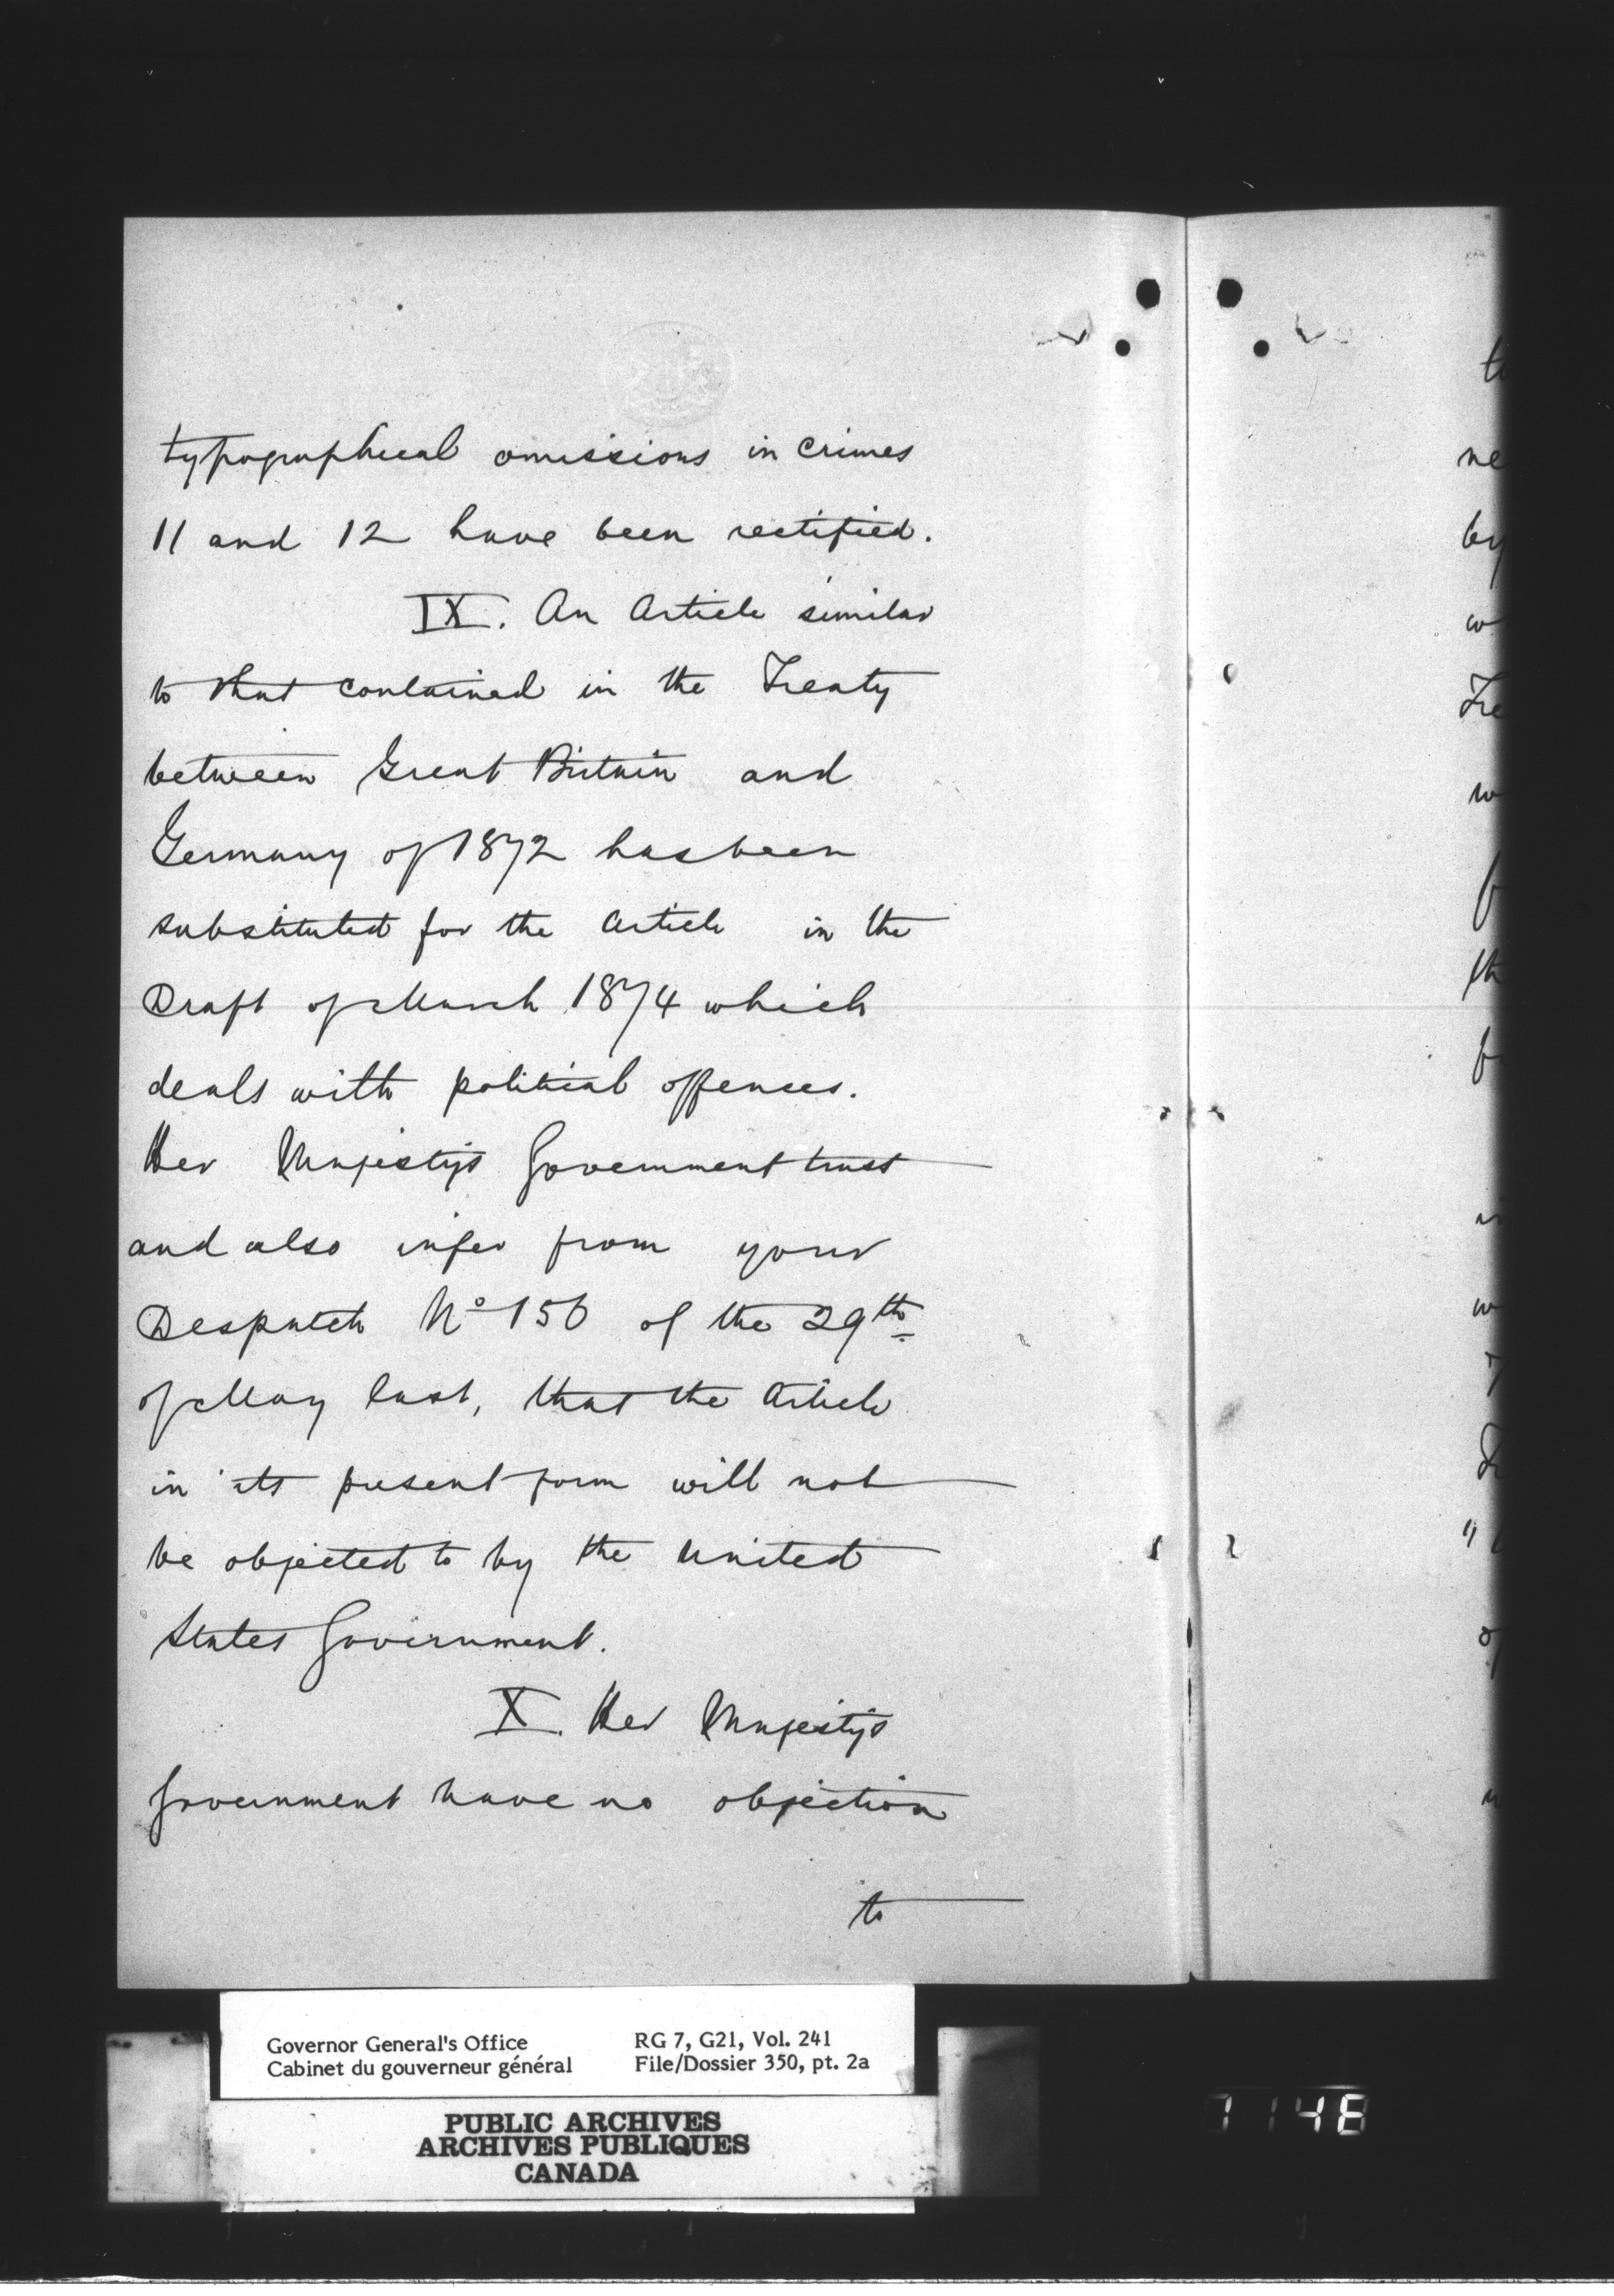 typographical omissions in crimes
11 and 12 have been rectified.
IX. An Article similar
to that contained in the Treaty
between Great Britain and
Germany of 1872 has been
substituted for the Article in the
Draft of March 1874 which
deals with political offences.
Her Majesty's Government trust
and also infer from your
Despatch No 156 of the 29th
of May last, that the Article
in its present form will not
be objected to by the United
States Government.
X. Her Majesty's
Government have no objection
to
ne
by
w
Tre
w
f
th
f
w
of
Governor General's Office
Cabinet du gouverneur général
RG 7, G21, Vol. 241
File/Dossier 350, pt. 2a
PUBLIC ARCHIVES
ARCHIVES PUBLIQUES
CANADA
1148